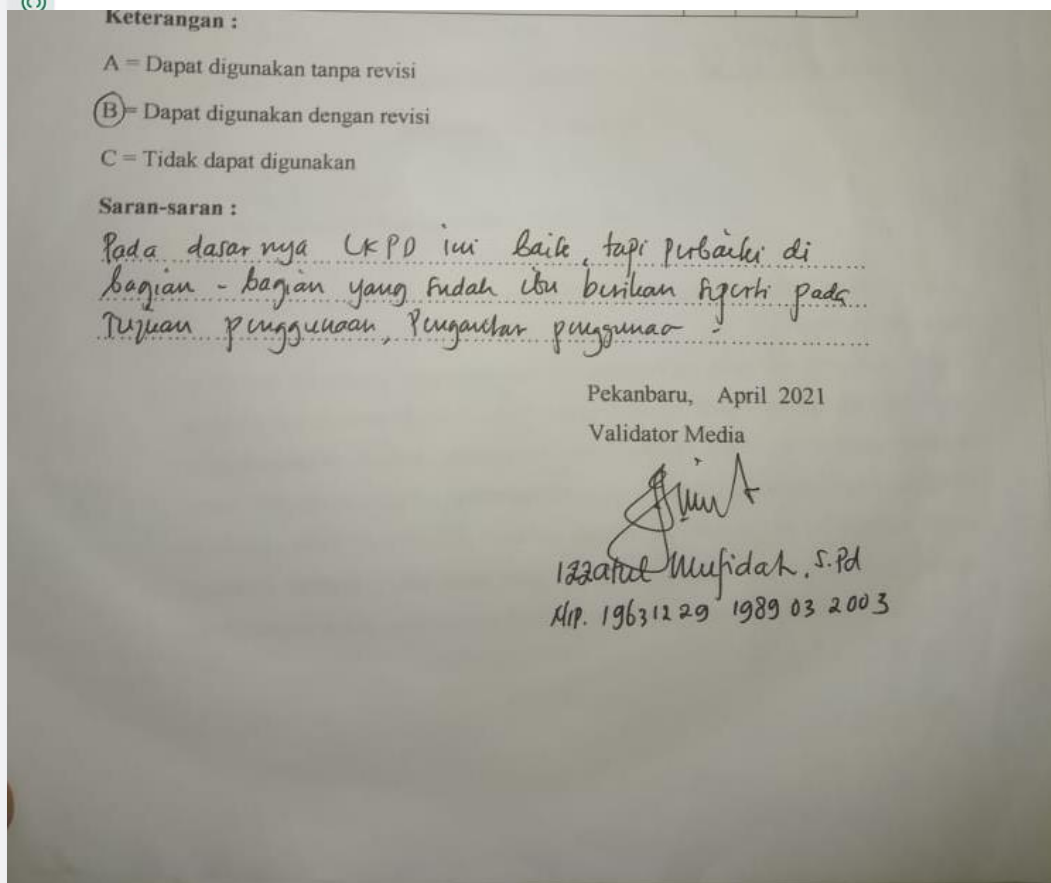 Keterangan :
A = Dapat digunakan tanpa revisi
B = Dapat digunakan dengan revisi
C = Tidak dapat digunakan
Saran-saran :
Pada dasarnya LKPD ini baik, tapi perbaiki di
bagian - bagian yang sudah ibu berikan seperti pada
Tujuan penggunaan, Pengantar penggunaa
Pekanbaru, April 2021
Validator Media
Izzatul Mufidah, S.Pd
NIP. 19631229 1989 03 2003